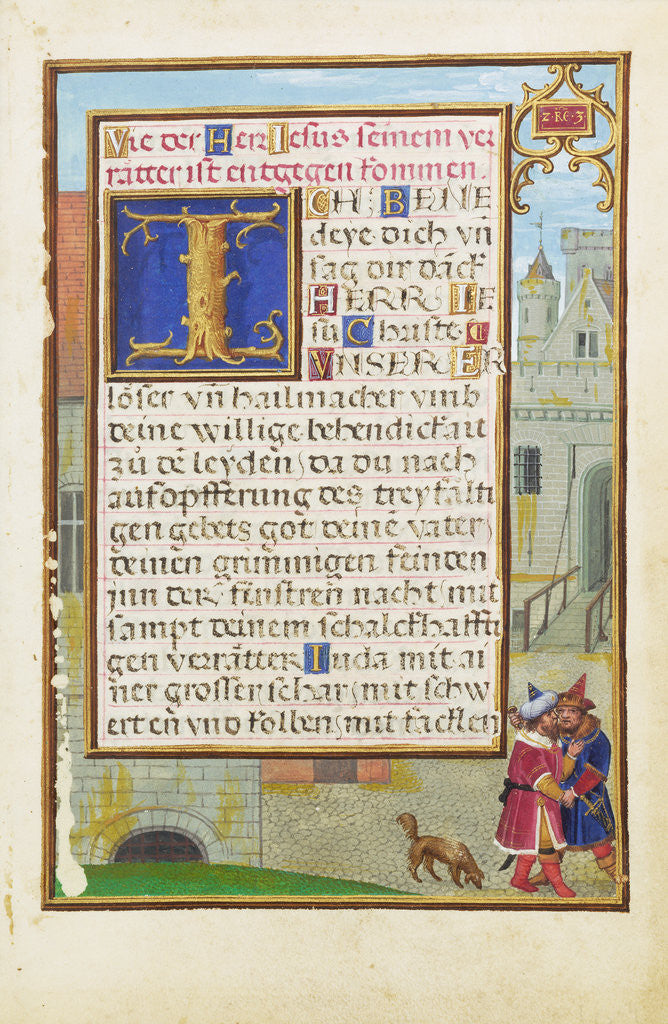 Z·RE·3
Vie der Herr Iesus seinem ver
rätter ist entgegen kommen.
ICH BENE
deye dich vn̄
sag dir dāck
HERR IE
su Christe
VNSER ER
löser vn̄ hailmacher vmb
deine willige behendickait
zů dē leyden, da du nach
aufopfferung des treyfälti
gen gebets got deinē vater,
deinen grim̄igen feinden
jnn der finstren nacht, mit
sampt deinem schalckhaffti
gen verrätter Iuda mit ai
ner grosser schar, mit schw
erten vnd kolben, mit facklen